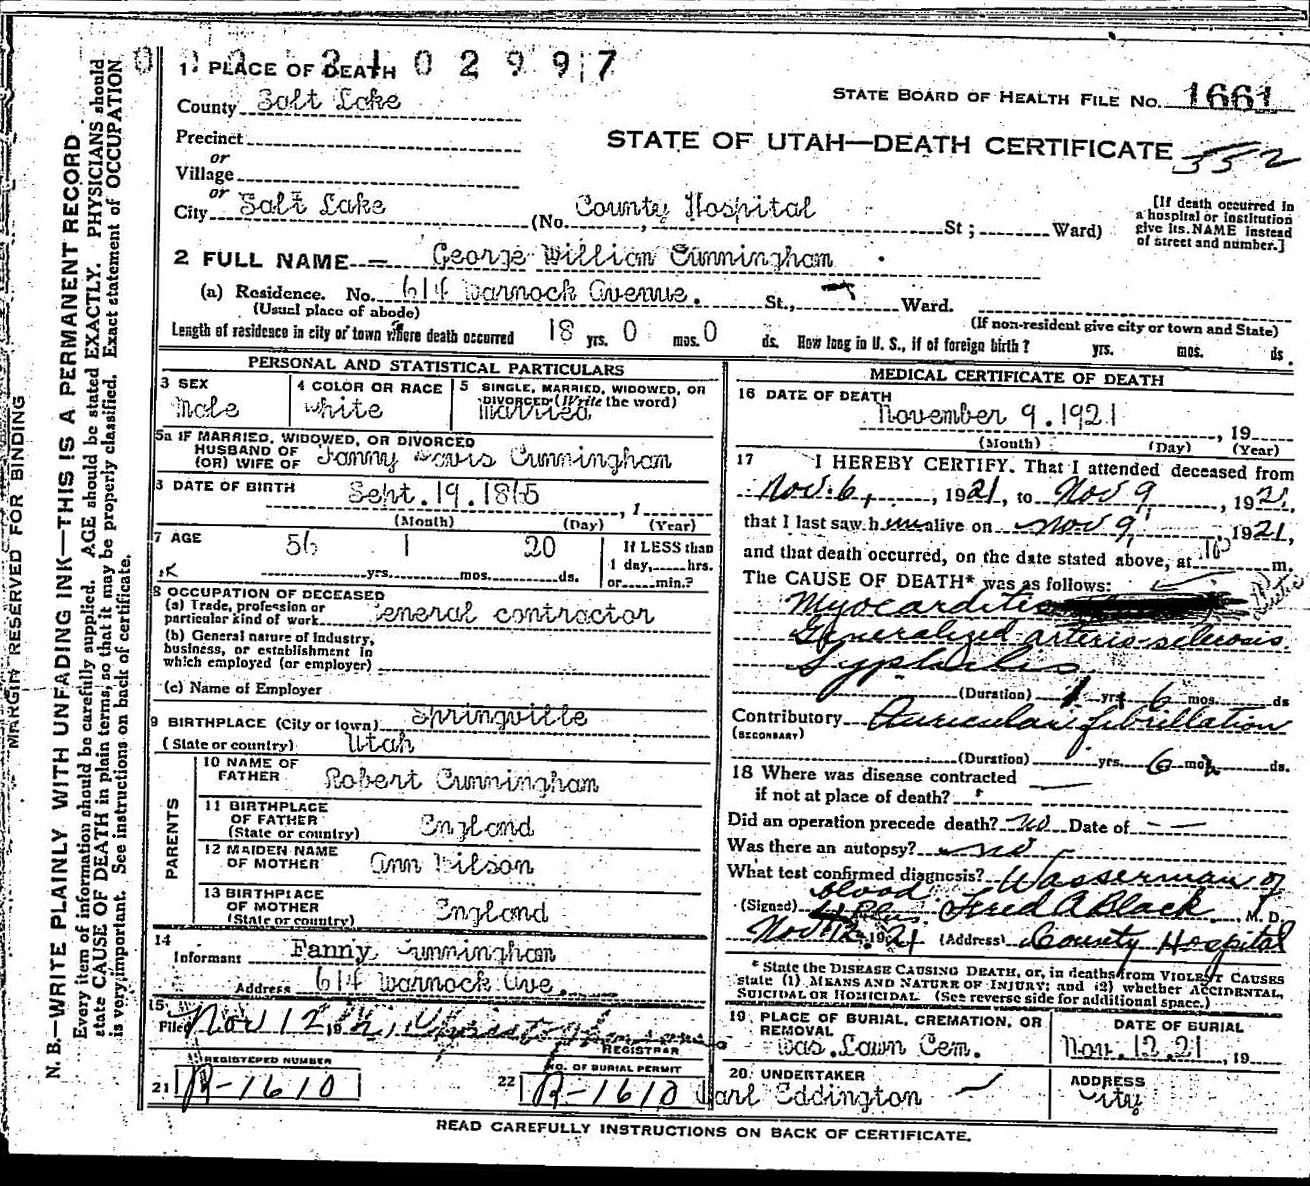 02997
1. PLACE OF DEATH
County Salt Lake
STATE BOARD OF HEALTH FILE No. 1661
Precinct
STATE OF UTAH—DEATH CERTIFICATE 352
or
Village
or
City Salt Lake (No. County Hospital St; Ward)
[If death occurred in a hospital or institution give its NAME instead of street and number.]
2 FULL NAME George William Cunningham
(a) Residence. No. 614 Warnock Avenue. St., Ward.
(Usual place of abode) (If non-resident give city or town and State)
Length of residence in city or town where death occurred 18 yrs. 0 mos. 0 ds. How long in U. S., if of foreign birth? yrs. mos. ds.
PERSONAL AND STATISTICAL PARTICULARS
3 SEX Male
4 COLOR OR RACE White
5 SINGLE, MARRIED, WIDOWED, OR DIVORCED (Write the word) Married
5a IF MARRIED, WIDOWED, OR DIVORCED
HUSBAND OF
(OR) WIFE OF Fanny Davis Cunningham
DATE OF BIRTH Sept. 19. 1865, 1
(Month) (Day) (Year)
7 AGE 56 yrs. 1 mos. 20 ds.
If LESS than 1 day, hrs. or min.?
8 OCCUPATION OF DECEASED
(a) Trade, profession or particular kind of work eneral contractor
(b) General nature of industry, business, or establishment in which employed (or employer)
(c) Name of Employer
9 BIRTHPLACE (City or town) Springville
(State or country) Utah
PARENTS
10 NAME OF FATHER Robert Cunningham
11 BIRTHPLACE OF FATHER (State or country) England
12 MAIDEN NAME OF MOTHER Ann Wilson
13 BIRTHPLACE OF MOTHER (State or country) England
14
Informant Fanny Cunningham
Address 614 Warnock Ave.
15 Filed Nov 12 19
REGISTRAR
REGISTERED NUMBER
21 R-1610
NO. OF BURIAL PERMIT
22 R-1610
MEDICAL CERTIFICATE OF DEATH
16 DATE OF DEATH
November 9. 1921, 19
(Month) (Day) (Year)
17 I HEREBY CERTIFY. That I attended deceased from
Nov. 6, 1921, to Nov 9, 1921,
that I last saw him alive on Nov 9, 1921,
and that death occurred, on the date stated above, at m.
The CAUSE OF DEATH* was as follows:
Myocarditis
Generalized arterio-sclerosis.
Syphilis
(Duration) 1 yrs 6 mos. ds
Contributory Auricular fibrillation
(SECONDARY)
(Duration) yrs. 6 mos. ds.
18 Where was disease contracted
if not at place of death?
Did an operation precede death? No Date of — —
Was there an autopsy? no
What test confirmed diagnosis? Wasserman of
blood 4 Plus
(Signed) Fred A Black M. D.
Nov 12, 1921 (Address) County Hospital
* State the DISEASE CAUSING DEATH, or, in deaths from VIOLENT CAUSES
state (1) MEANS AND NATURE OF INJURY; and (2) whether ACCIDENTAL,
SUICIDAL OR HOMICIDAL. (See reverse side for additional space.)
19. PLACE OF BURIAL, CREMATION, OR REMOVAL
Was. Lawn Cem.
DATE OF BURIAL
Nov. 12. 21, 19
20. UNDERTAKER
arl Eddington
ADDRESS
City
READ CAREFULLY INSTRUCTIONS ON BACK OF CERTIFICATE.
MARGIN RESERVED FOR BINDING
N. B.—WRITE PLAINLY WITH UNFADING INK—THIS IS A PERMANENT RECORD
Every item of information should be carefully supplied. AGE should be stated EXACTLY. PHYSICIANS should
state CAUSE OF DEATH in plain terms, so that it may be properly classified. Exact statement of OCCUPATION
is very important. See instructions on back of certificate.